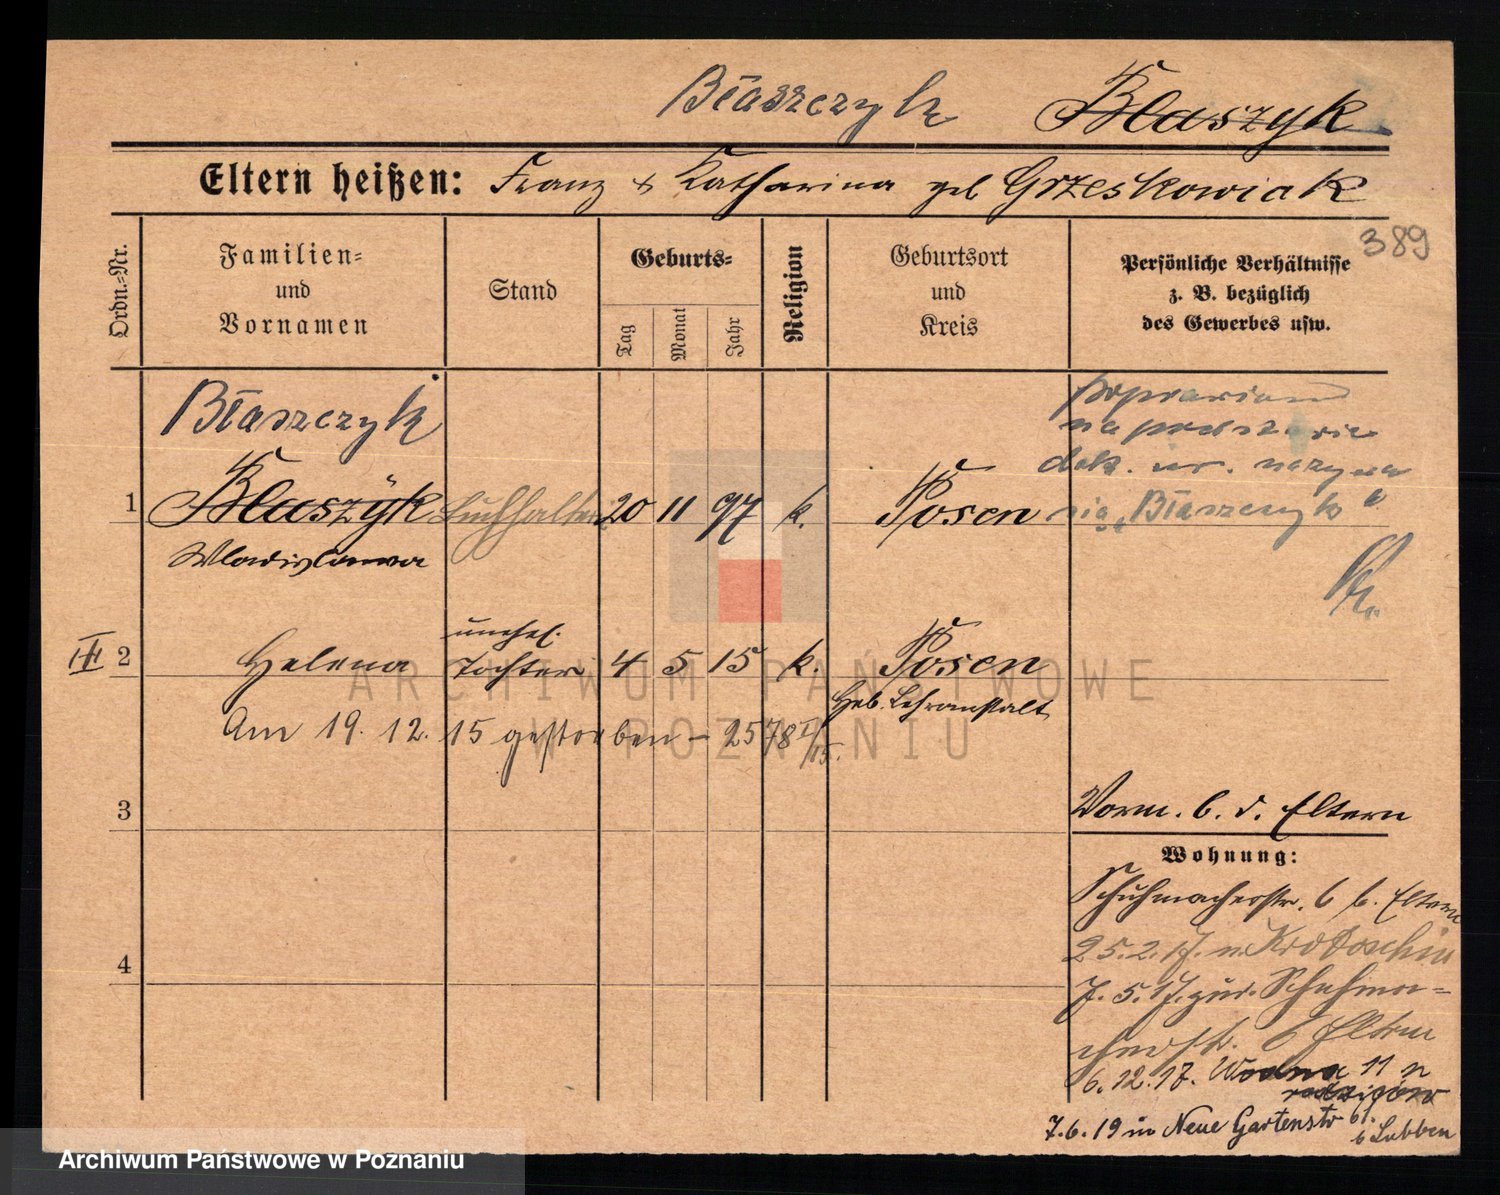 Błaszczyk Blaszyk
Eltern heißen: Franz & Katharina geb Grzeskowiak
389
Ordn.-Nr.
Familien-
und
Vornamen
Stand
Geburts-
Tag
Monat
Jahr
Religion
Geburtsort
und
Kreis
Persönliche Verhältnisse
z. B. bezüglich
des Gewerbes usw.
Błaszczyk
1 Blaszyk Buchhalterin 20 11 97 k. Posen
Wladislawa
na podstawie
dok. ur. nazywa
się „Błaszczyk"
unehel.
III 2 Helena Tochter 4 5 15 k. Posen
Heb. Lehranstalt
Am 19. 12. 15 gestorben - 2578 I/15.
3
Vorm. b. d. Eltern
Wohnung:
Schuhmacherstr. 6 b. Eltern
25.2.17. n. Krotoschin
4
7. 5. 17. zur. Schuhma-
cherstr. 6 Eltern
6.12.17. Wodna 11 n
rodziców
7.6.19 in Neue Gartenstr 61.
b Lubben
ARCHIWUM PAŃSTWOWE
W POZNANIU
Archiwum Państwowe w Poznaniu